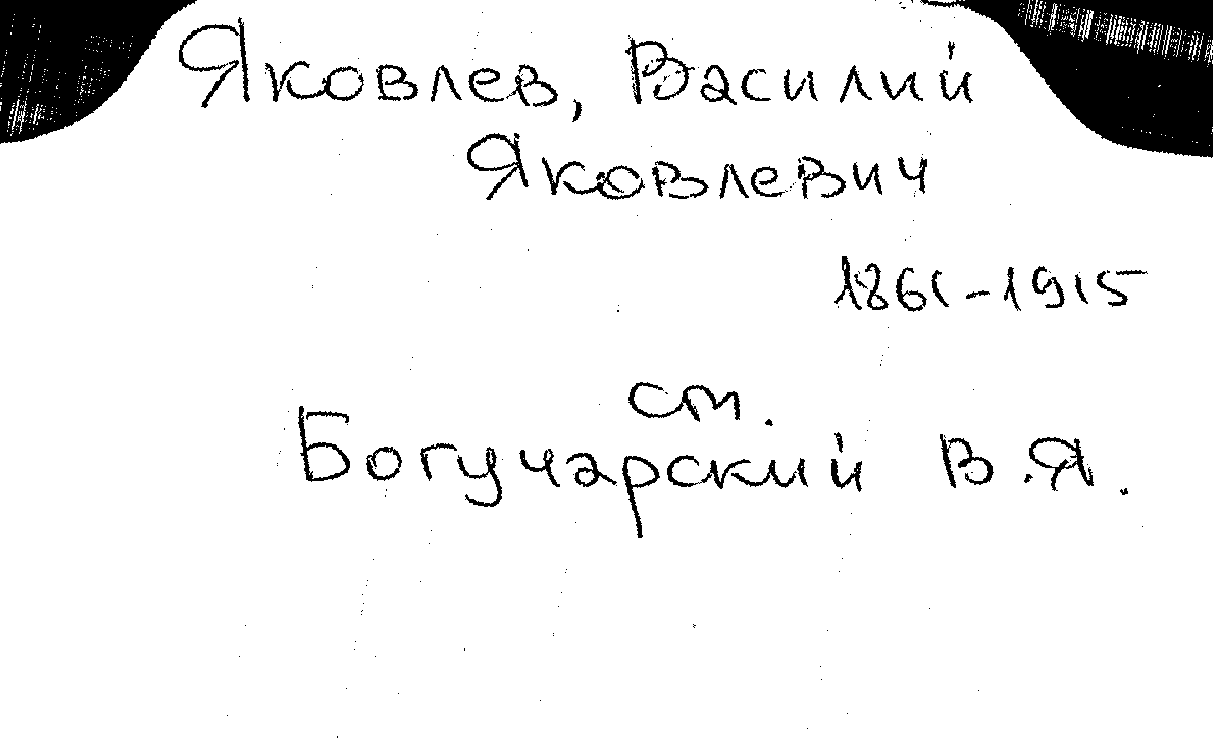 Яковлев, Василий
Яковлевич
1861-1915
см.
Богучарский В.Я.